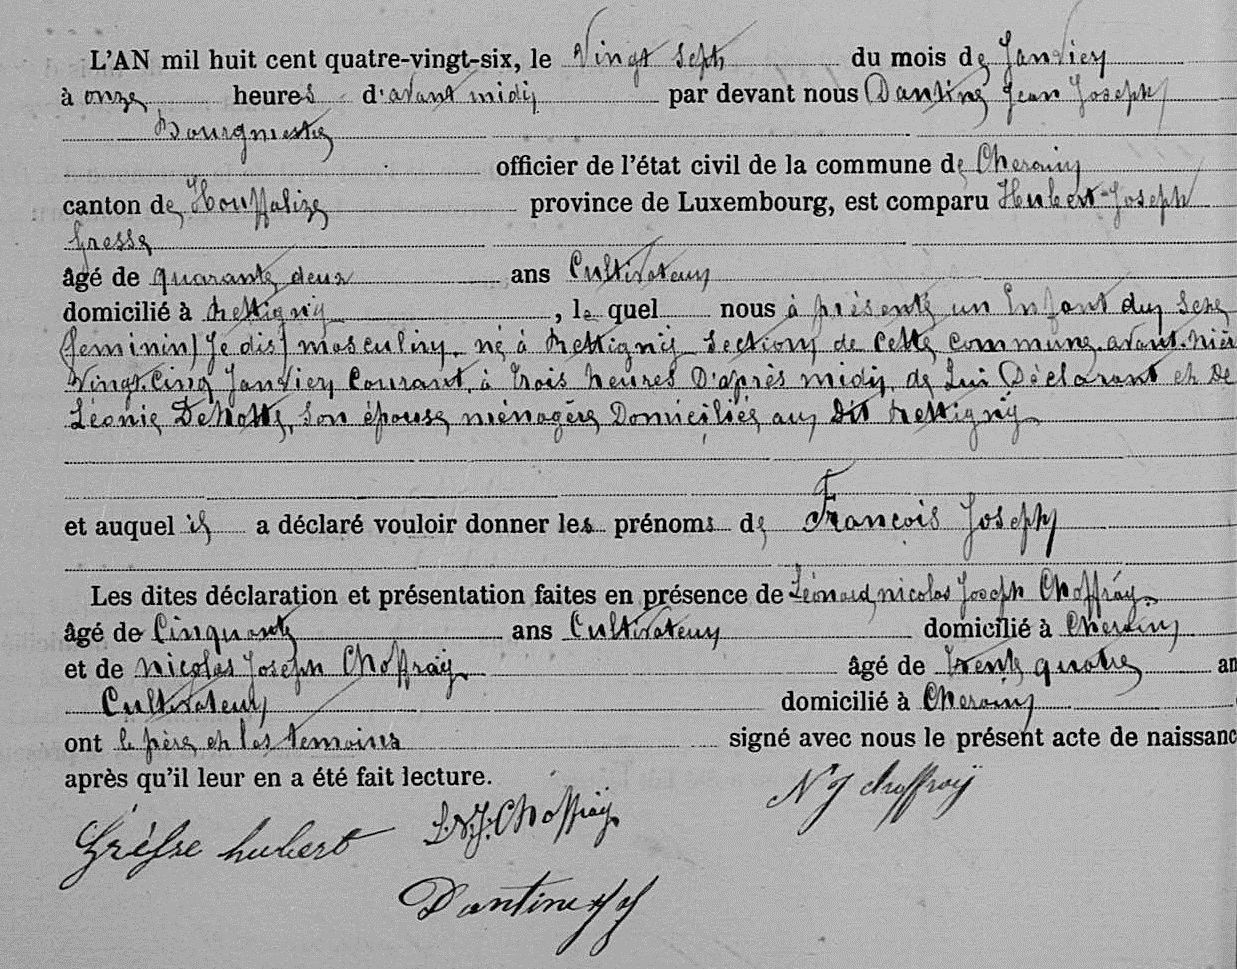 L'AN mil huit cent quatre-vingt-six, le Vingt Sept du mois de Janvier
à onze heures d'avant midi par devant nous Dantine Jean Joseph
Bourgmestre
officier de l'état civil de la commune de Cherain
canton de Houffalize province de Luxembourg, est comparu Hubert-Joseph
Gresse
âgé de quarante deux ans Cultivateur
domicilié à Rettigny, le quel nous à présenté un Enfant du Sexe
(feminin) Je dis) masculin, né à Rettigny Section de Cette Commune avant-hier
Vingt-Cinq Janvier Courant, à trois heures D'après midi, de Lui Déclarant et De
Léonie Dehotte, Son épouse ménagère Domiciliés au Dit Rettigny
et auquel il a déclaré vouloir donner les prénoms de François Joseph
Les dites déclaration et présentation faites en présence de Léonard nicolas Joseph Choffray
âgé de Cinquante ans Cultivateur domicilié à Cherain
et de Nicolas Joseph Choffray âgé de trente quatre an
Cultivateur domicilié à Cherain
ont le père et les temoins signé avec nous le présent acte de naissanc
après qu'il leur en a été fait lecture.
N J choffray
L.N.J. Choffray
Grèsse hubert
Dantine JJ